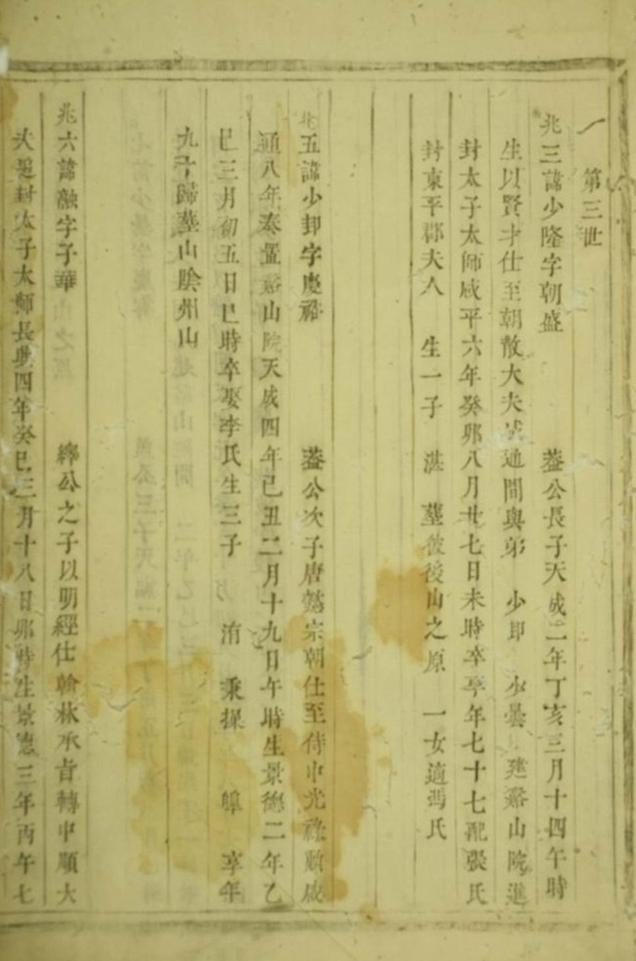 第三世
兆三諱少隆字朝盛 葢公長子天成二年丁亥三月十四午時
生以賢才仕至朝散大夫咸通間與弟 少卽 少曇 建嵠山院進
封太子太師咸平六年癸卯八月廿七日未時卒享年七十七配張氏
封東平郡夫人 生一子 湛 葬彼後山之原 一女適馮氏
兆五諱少卽字慶 葢公次子唐懿宗朝仕至侍中光祿勳咸
通八年奏置嵠山院天成四年己丑二月十九日午時生景德二年乙
巳三月初五日巳時卒娶李氏生三子 洧 秉操 皥 享年
九十歸葬山陰州山
兆六諱融字子華 繹公之子以明經仕翰林承旨轉中順大
夫晃封太子太師長興四年癸巳三月十八日卯時生景 三年丙午七